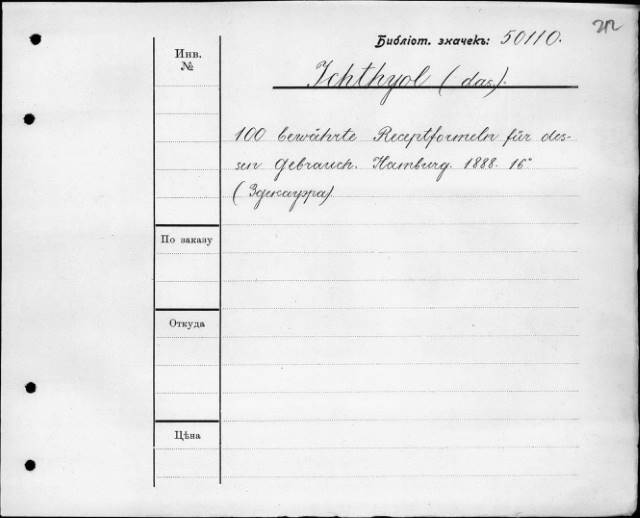 212
Библіот. значекъ: 50110.
Инв.
№
Ichthyol (das).
100 bewährte Receptformeln für des-
sen Gebrauch. Hamburg. 1888. 16°
(Здекауэра)
По заказу
Откуда
Цѣна